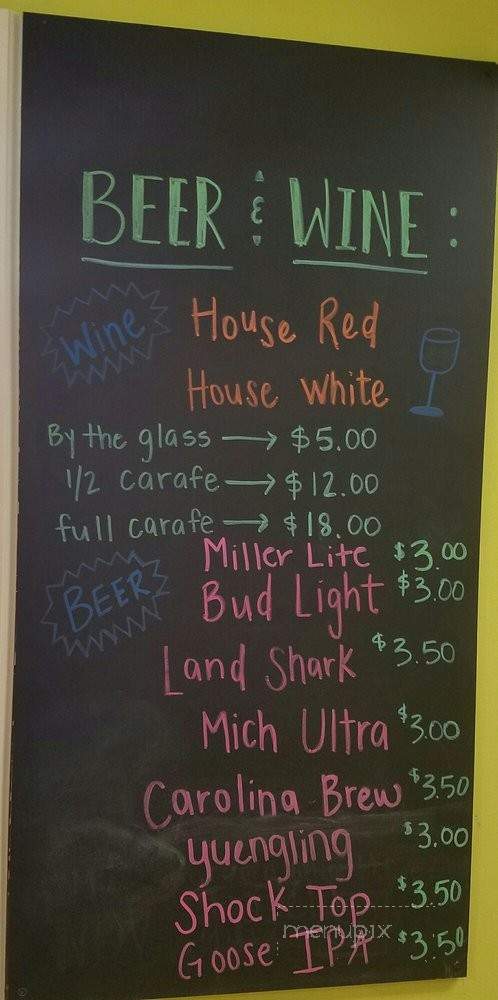 BEER & WINE :
Wine House Red
House White
By the glass → $5.00
1/2 carafe → $12.00
full carafe → $18.00
Miller Lite $3.00
BEER Bud Light $3.00
Land Shark $3.50
Mich Ultra $3.00
Carolina Brew $3.50
yuengling $3.00
Shock Top $3.50
menupix
Goose IPA $3.50